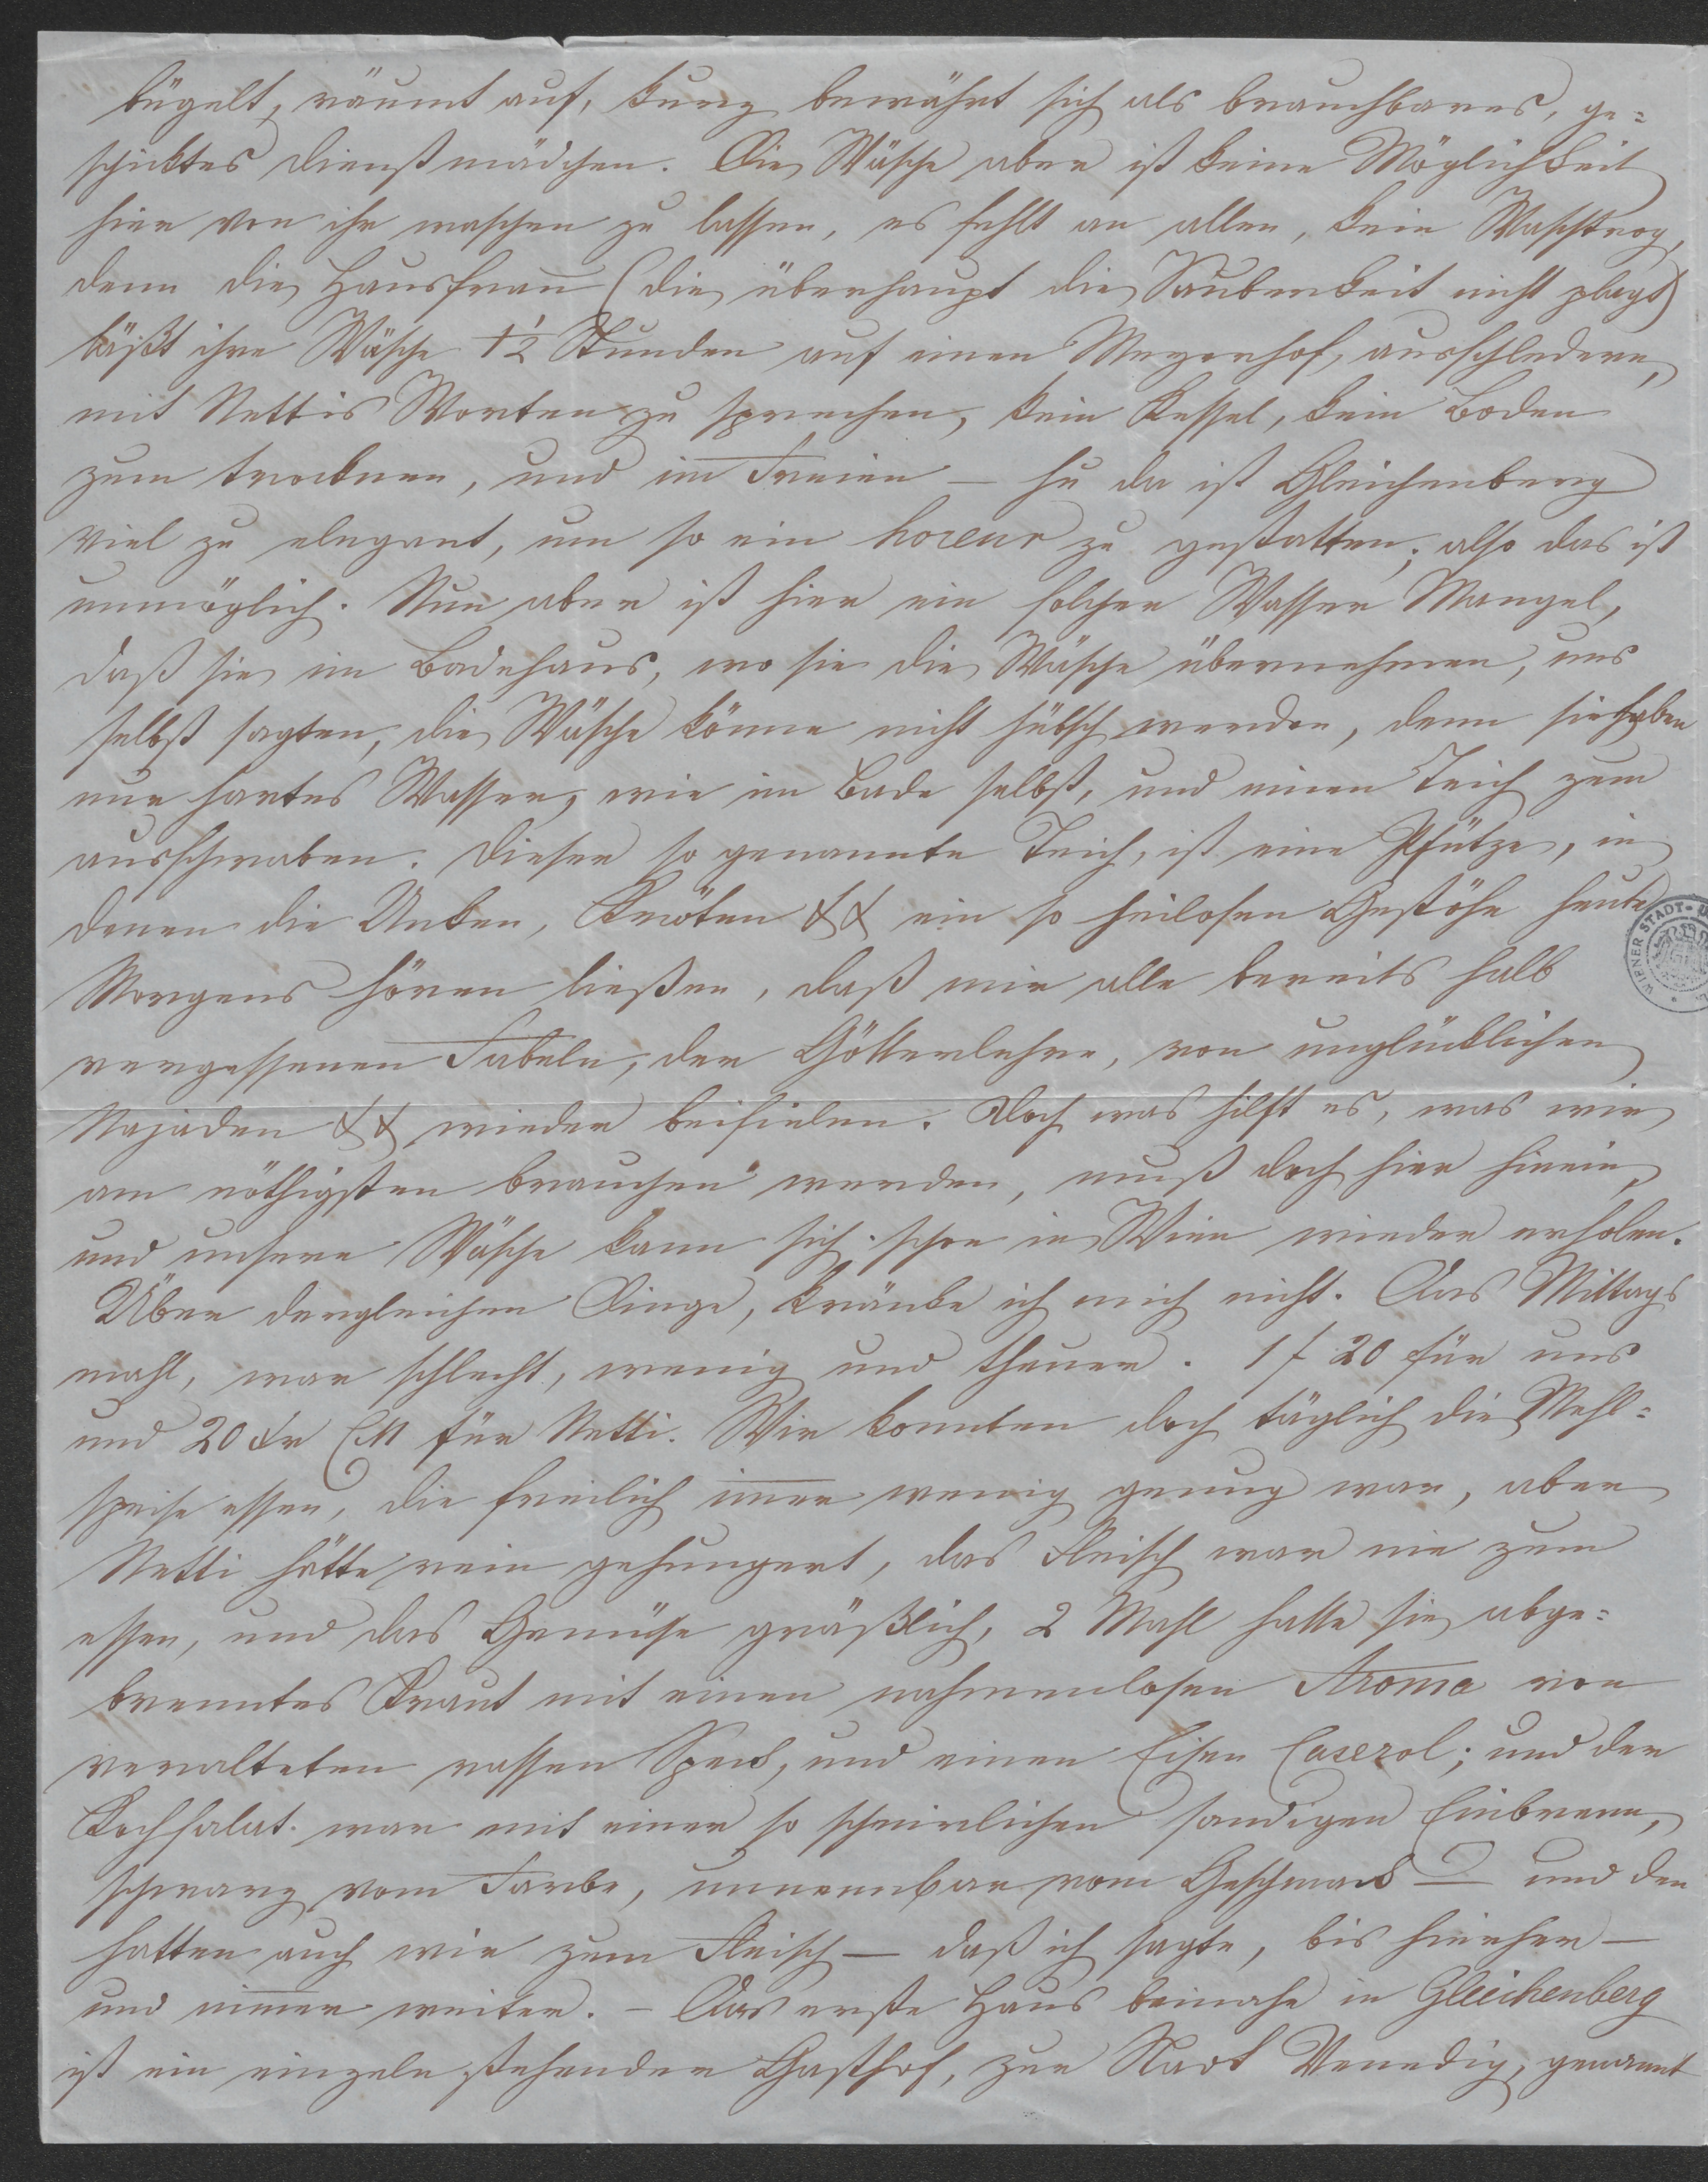 bügelt, räumt auf, kurz bewährt sich als brauchbares, ge=
schicktes Dienstmädchen. Die Wäsche aber ist keine Möglichkeit
hier von ihr waschen zu lassen, es fehlt an allen, kein Waschtrog,
denn die Hausfrau (die überhaupt die Sauberkeit nicht plagt)
läßt ihre Wäsche 1/2 Stunden auf einen Meyerhof, ausschledern,
mit Nettis Worten zu sprechen, kein Kessel, kein Boden
zum trocknen, und im Freien – hu da ist Gleichenberg
viel zu elegant, um so ein horeur zu gestatten; also das ist
unmöglich. Nun aber ist hier ein solcher Wasser Mangel,
daß sie im Badehaus, wo sie die Wäsche übernehmen, uns
selbst sagten, die Wäsche könne nicht hübsch werden, denn sie haben
nur hartes Wasser, wie im Bade selbst, und einen Teich zum
ausschwaben. Dieser so genannte Teich, ist eine Pfütze, in
denen die Unken, Kröten && ein so heilosen Gestöhn heute
Morgens hören ließen, daß mir alle bereits halb
vergessenen Fabeln, der Götterlehre, von unglücklichen
Najaden && wieder beifielen. Doch was hilft es, was wir
am nöthigsten brauchen werden, muß doch hier hinein,
und unsere Wäsche kann sich schon in Wien wieder erholen.
Über dergleichen Dinge, kränke ich mich nicht. Das Mittags
mahl, war schlecht, wenig und theuer. 1 f 20 für uns
und 20 Xr CM für Netti. Wir konnten doch täglich die Mehl=
speise essen, die freilich immer wenig genug war, aber
Netti hätte rein gehungert, das Fleisch war nie zum
essen, und das Gemüse gräßlich, 2 Mahl hatte sie abge=
branntes Kraut mit einen nahmenlosen Aroma von
veralteten rassen Speck, und einen Eisen Caserol; und der
Kochsalat war mit einer so schmierlichen sandigen Einbrenn,
schwarz vom Farbe, unnennbar vom Geschmack – und den
hatten auch wir zum Fleisch – daß ich sagte, bis hierher –
und nimmer weiter. – Das erste Haus beinahe in Gleichenberg
ist ein einzeln stehender Gasthof, zur Stadt Venedig, genannt
WIENER STADT-